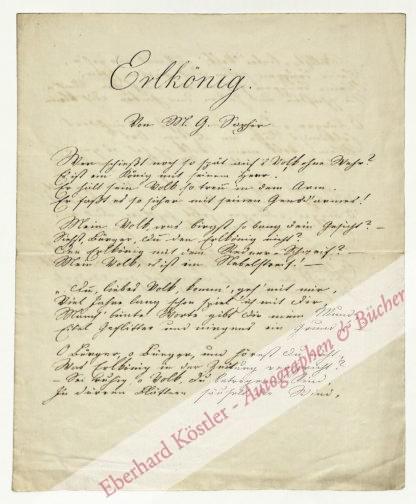 Erlkönig.
Von M. G. Saphir
Wer schießt noch so spät auf's Volk ohne Wehr?
Es ist ein König mit seinem Heer.
Er hält sein Volk so treu in dem Arm.
Er faßt es so sicher mit seinen Gendarmes!
Mein Volk, was birgst so bang dein Gesicht? –
Siehst, Bürger, du den Erlkönig nicht?
Den Erlkönig mit dem Schweif? –
Mein Volk, es ist ein Nebelstreif! –
"Du, liebes Volk, komm', geh' mit mir,
Viel Jahre lang schon spiel' ich mit Dir
Manch' bunte Worte gibt die mein Mund
Eitel Geflitter und nirgens ein Grund
O Bürger, o Bürger, und hörest du nicht,
Was Erlkönig in der Zeitung verspricht?
– Sei ruhig, o Volk, du Kind,
In dürren Blättern säuselt der Wind,
Eberhard Köstler - Autographen & Bücher